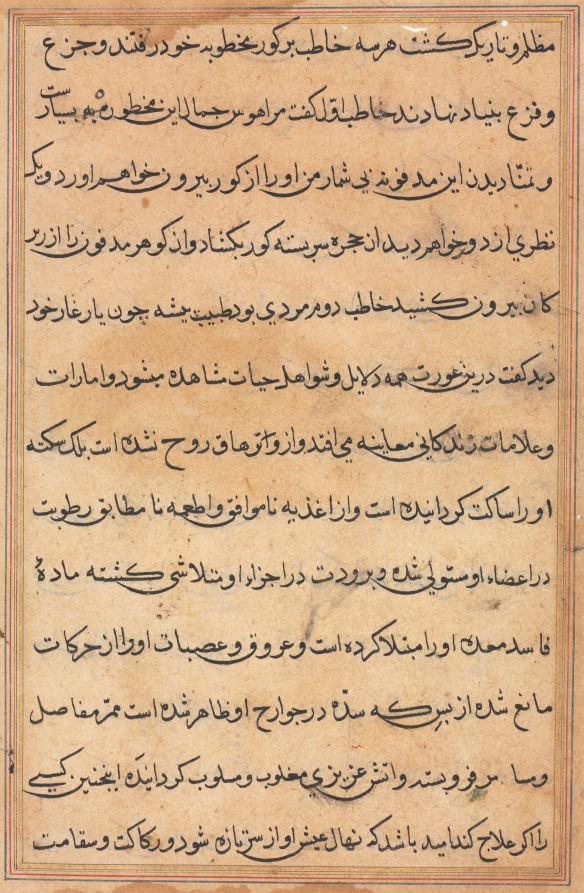 مظلم و تاریک کشت هر سه خاطب بر کور مخطوبه خود رفتند و جزع
و فزع بنیاد نهادند خاطب اول کفت مرا هوس جمال این مخطوبه بسیارست
و تمنا دیدن این مدفونه بی شمار من او را از کور بیرون خواهم اورد و یک
نظری از دور خواهم دید از حجره سربسته کور بکشاد و از کوهر مدفون را از زیر
کان بیرون کشید خاطب دوم مردی بود طبیب پیشه چون یار غار خود
دید کفت درین عورت همه دلایل و شواهد حیات مشاهده میشود و امارات
و علامات زندکانی معاینه می افتد و از و اثر هاق روح نشده است بلک سکته
او را ساکت کردانیده است و از اغذیه ناموافق و اطعمه نا مطابق رطوبت
در اعضاء او مستولی شده و برودت در اجزاء او متلاشی کشته مادهٔ
فاسد معده او را مبتلا کرده است و عروق و عصبات او را از حرکات
مانع شده از بس که سدّه در جوارح او ظاهر شده است ممرّ مفاصل
و مسا مر فروبسته و اتش عزیزی مغلوب و مسلوب کردانیده اینچنین کسی
را اکر علاج کنند امید باشد که نهال عیش او از سر تازه شود و رکاکت و سقامت